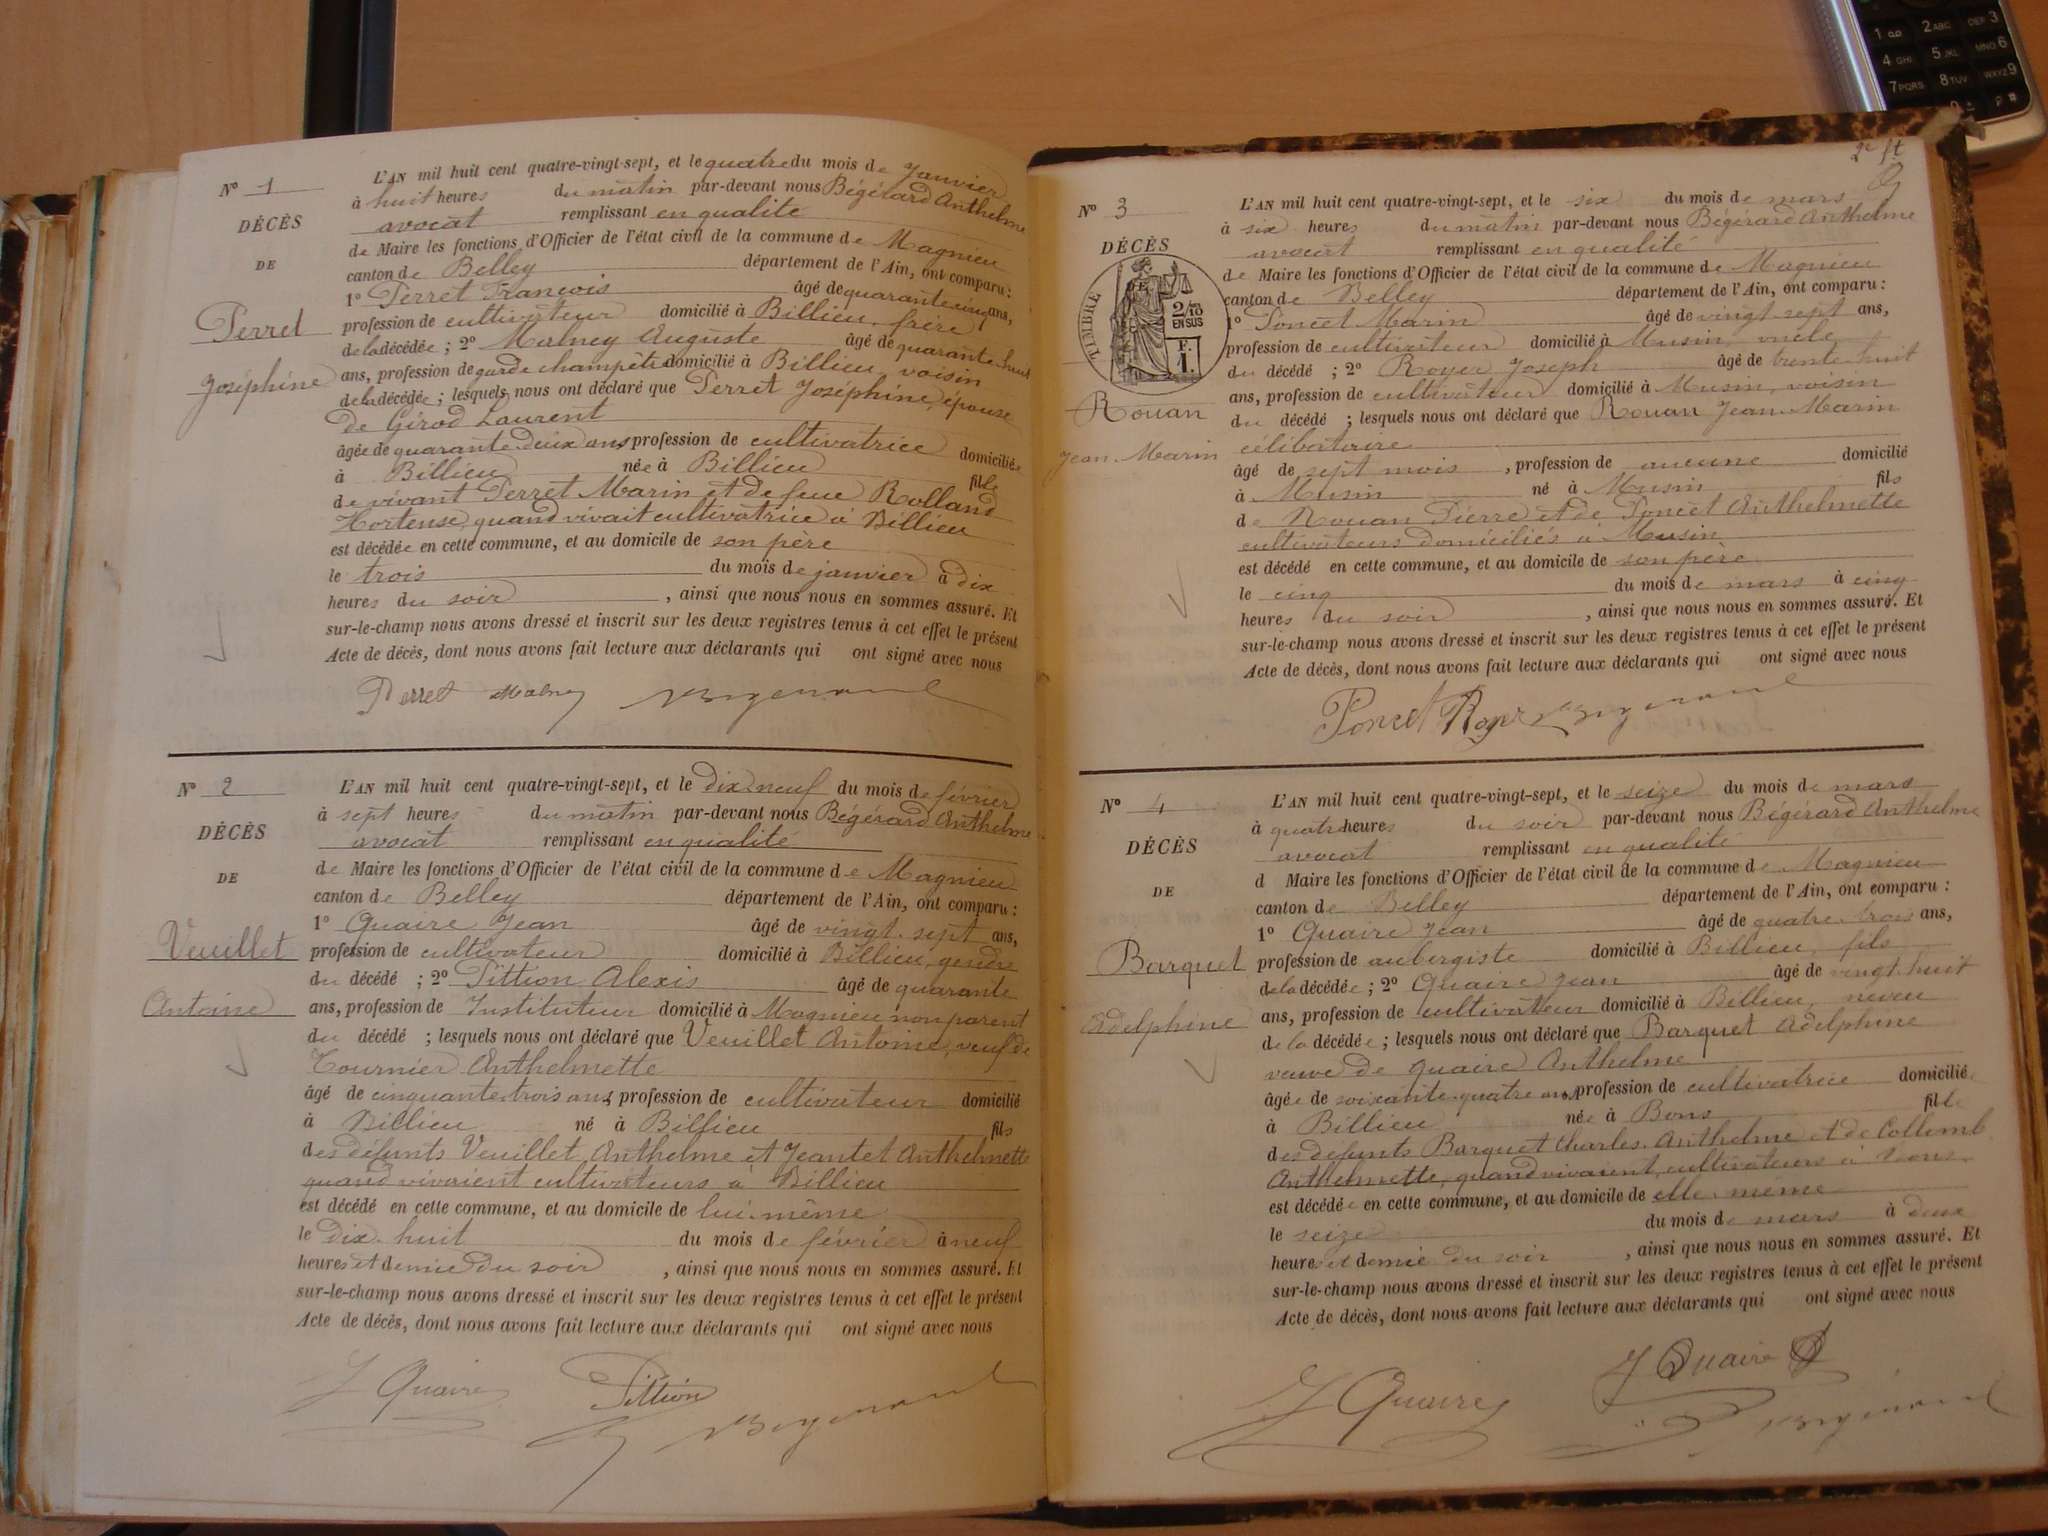 N° 1
DÉCÈS
DE
Perret
Joséphine
L'AN mil huit cent quatre-vingt-sept, et le quatre du mois de Janvier
à huit heures du matin par-devant nous Bégérard Anthelme
avocat remplissant en qualité
de Maire les fonctions d'Officier de l'état civil de la commune de Magnieu
canton de Belley département de l'Ain, ont comparu :
1° Perret François âgé de quarante cinq ans,
profession de cultivateur domicilié à Billieu, frère
de la décédée ; 2° Malney Auguste âgé de quarante-huit
ans, profession de garde champêtre domicilié à Billieu, voisin
de la décédée ; lesquels nous ont déclaré que Perret Joséphine, épouse
de Girod Laurent
âgée de quarante-deux ans, profession de cultivatrice domiciliée
à Billieu née à Billieu fille
de vivant Perret Marin et de feue Rolland
Hortense, quand vivait cultivatrice à Billieu
est décédée en cette commune, et au domicile de son père
le trois du mois de janvier à dix
heures du soir , ainsi que nous nous en sommes assuré. Et
sur-le-champ nous avons dressé et inscrit sur les deux registres tenus à cet effet le présent
Acte de décès, dont nous avons fait lecture aux déclarants qui ont signé avec nous
Perret Malney
N° 2
DÉCÈS
DE
Veuillet
Antoine
L'AN mil huit cent quatre-vingt-sept, et le dix neuf du mois de février
à sept heures du matin par-devant nous Bégérard Anthelme
avocat remplissant en qualité
de Maire les fonctions d'Officier de l'état civil de la commune de Magnieu
canton de Belley département de l'Ain, ont comparu :
1° Quaire Jean âgé de vingt-sept ans,
profession de cultivateur domicilié à Billieu, gendre
du décédé ; 2° Pittion Alexis âgé de quarante
ans, profession de Instituteur domicilié à Magnieu non parent
du décédé ; lesquels nous ont déclaré que Veuillet Antoine, veuf de
Tournier Anthelmette
âgé de cinquante-trois ans, profession de cultivateur domicilié
à Billieu né à Billieu fils
des défunts Veuillet Anthelme et Jeantet Anthelmette
quand vivaient cultivateurs à Billieu
est décédé en cette commune, et au domicile de lui-même
le dix-huit du mois de février à neuf
heures et demie du soir , ainsi que nous nous en sommes assuré. Et
sur-le-champ nous avons dressé et inscrit sur les deux registres tenus à cet effet le présent
Acte de décès, dont nous avons fait lecture aux déclarants qui ont signé avec nous
J Quaire Pittion
2e ft
N° 3
DÉCÈS
TIMBRE
2/10
EN SUS
F.
1.
Rouan
Jean-Marin
L'AN mil huit cent quatre-vingt-sept, et le six du mois de mars
à six heures du matin par-devant nous Bégérard Anthelme
avocat remplissant en qualité
de Maire les fonctions d'Officier de l'état civil de la commune de Magnieu
canton de Belley département de l'Ain, ont comparu :
1° Poncet Marin âgé de vingt sept ans,
profession de cultivateur domicilié à Musin, oncle
du décédé ; 2° Royer Joseph âgé de trente-huit
ans, profession de cultivateur domicilié à Musin, voisin
du décédé ; lesquels nous ont déclaré que Rouan Jean-Marin
célibataire
âgé de sept mois , profession de aucune domicilié
à Musin né à Musin fils
de Rouan Pierre et de Poncet Anthelmette
cultivateurs domiciliés à Musin
est décédé en cette commune, et au domicile de son père
le cinq du mois de mars à cinq
heures du soir , ainsi que nous nous en sommes assuré. Et
sur-le-champ nous avons dressé et inscrit sur les deux registres tenus à cet effet le présent
Acte de décès, dont nous avons fait lecture aux déclarants qui ont signé avec nous
Poncet Royer
N° 4
DÉCÈS
DE
Barquet
Adelphine
L'AN mil huit cent quatre-vingt-sept, et le seize du mois de mars
à quatre heures du soir par-devant nous Bégérard Anthelme
avocat remplissant en qualité
d Maire les fonctions d'Officier de l'état civil de la commune de Magnieu
canton de Belley département de l'Ain, ont comparu :
1° Quaire Jean âgé de quatre-trois ans,
profession de aubergiste domicilié à Billieu, fils
de la décédée ; 2° Quaire Jean âgé de vingt-huit
ans, profession de cultivateur domicilié à Billieu, neveu
de la décédée ; lesquels nous ont déclaré que Barquet Adelphine
veuve de Quaire Anthelme
âgée de soixante-quatre ans, profession de cultivatrice domiciliée
à Billieu née à Bons fille
des défunts Barquet Charles-Anthelme et de Collomb
Anthelmette, quand vivaient, cultivateurs à Bons
est décédée en cette commune, et au domicile de elle-même
le seize du mois de mars à deux
heures et demie du soir , ainsi que nous nous en sommes assuré. Et
sur-le-champ nous avons dressé et inscrit sur les deux registres tenus à cet effet le présent
Acte de décès, dont nous avons fait lecture aux déclarants qui ont signé avec nous
J Quaire J Quaire
1 2 ABC DEF 3
4 GHI 5 JKL MNO 6
7 PQRS 8 TUV WXYZ 9